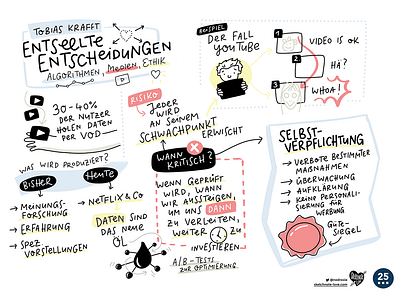 TOBIAS KRAFFT
ENTSEELTE
ENTSCHEIDUNGEN
ALGORITHMEN, MEDIEN, ETHIK
30-40%
DER NUTZER
HOLEN DATEN
PER VOD
RISIKO
JEDER
WIRD
AN SEINEM
SCHWACHPUNKT
ERWISCHT
BEISPIEL
DER FALL
YOUTUBE
1
VIDEO IS OK
2
HÄ?
3
WHOA!
WAS WIRD PRODUZIERT?
BISHER
→ MEINUNGS-
FORSCHUNG
→ ERFAHRUNG
→ SPEZ.
VORSTELLUNGEN
HEUTE
→ NETFLIX & CO
DATEN SIND
DAS NEUE
ÖL
WANN
KRITISCH?
WENN GEPRÜFT
WIRD, WANN
WIR AUSSTEIGEN,
UM UNS DANN
ZU VERLEITEN,
WEITER
ZU
INVESTIEREN
A/B-TESTS
ZUR OPTIMIERUNG
SELBST-
VERPFLICHTUNG
→ VERBOTE BESTIMMTER
MASSNAHMEN
→ ÜBERWACHUNG
→ AUFKLÄRUNG
→ KEINE PERSONALI-
SIERUNG FÜR
WERBUNG
GÜTE-
SIEGEL
sketchnote-love.com
25